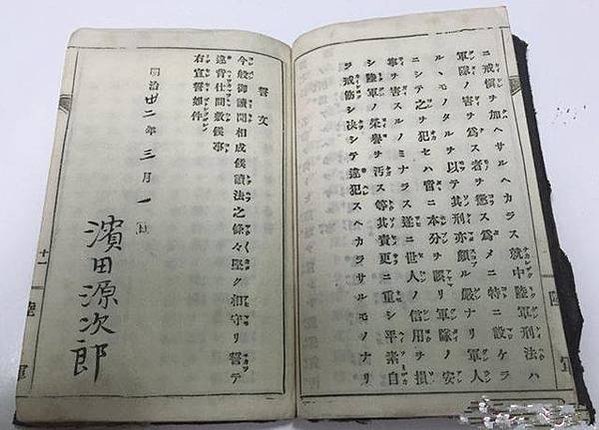 ニ戒愼ヲ加ヘサルヘカラス就中陸軍刑法ハ
軍隊ノ害ヲ爲ス者ヲ懲ス爲メニ特ニ設ケラ
ルヽモノタルヲ以テ其刑亦頗ル嚴ナリ軍人
ニシテ之ヲ犯セハ啻ニ本分ヲ誤リ軍隊ノ安
寧ヲ害スルノミナラス遂ニ世人ノ信用ヲ損
シ陸軍ノ榮譽ヲ汚ス等其責更ニ重シ平素自
ラ戒飭シ決シテ違犯スヘカラサルモノナリ
陸軍
誓文
今般御讀聞相成候讀法之條々堅ク相守リ誓テ
違背仕間敷候事
右宣誓如件
明治廿二年三月一日
濱田源次郎
十二
陸軍